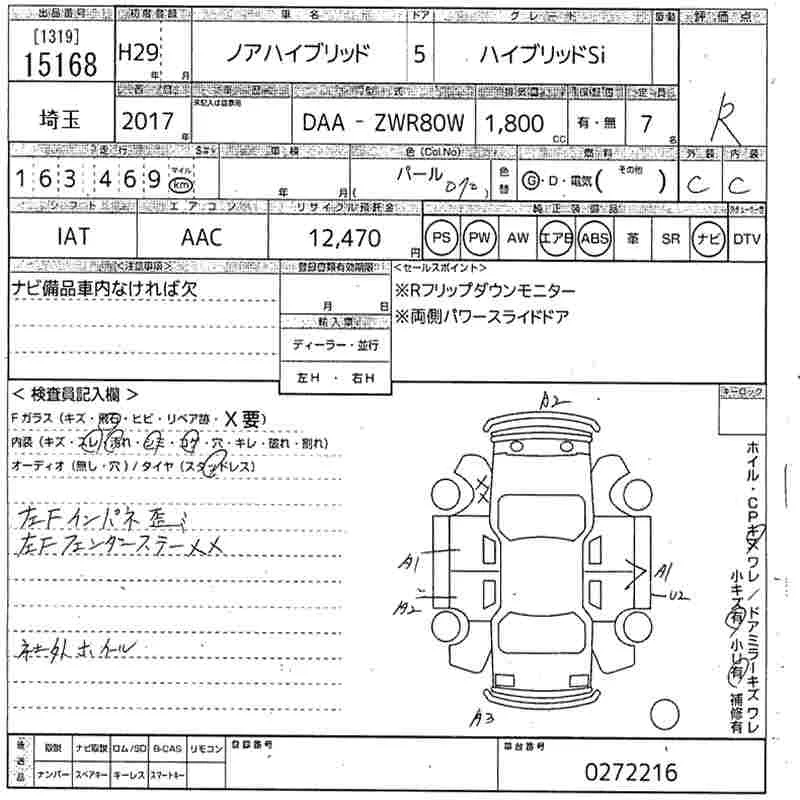 出品番号 初度登録 車名 ドア グレード 評価点
[1319]
15168 H29 年 月 ノアハイブリッド 5 ハイブリッドSi
埼玉 2017 年 車歴 型式 排気量 定員
未記入は自家用
DAA - ZWR80W 1,800 CC 有・無 7 名 R
走行 車検 色(Col.No) 燃料 外装 内装
163,469 マイル km 年 月 パール 070 色替 G・D・電気( その他 ) C C
シフト エアコン リサイクル預託金 純正装備品
IAT AAC 12,470 円 PS PW AW エアB ABS 革 SR ナビ DTV
<注意事項> 登録書類有効期限 <セールスポイント>
ナビ備品車内なければ欠 ※Rフリップダウンモニター
月 日 ※両側パワースライドドア
輸入車
ディーラー・並行
左H ・ 右H
< 検査員記入欄 > キーロック
Fガラス(キズ・飛石・ヒビ・リペア跡・X要)
内装(キズ・スレ・汚れ・シミ・コゲ・穴・キレ・破れ・割れ)
オーディオ(無し・穴)/タイヤ(スタッドレス)
左Fインパネ歪ミ
左Fフェンダーステーメメ
社外ホイール
A2
XX
A1
A2
A1
U2
A3
ホイル・CPキズワレ/ドアミラーキズワレ
小キズ有/小U有 補修有
後送品 取説 ナビ取説 ロム/SD B-CAS リモコン 登録番号 車台番号
ナンバー スペアキー キーレス スマートキー 0272216